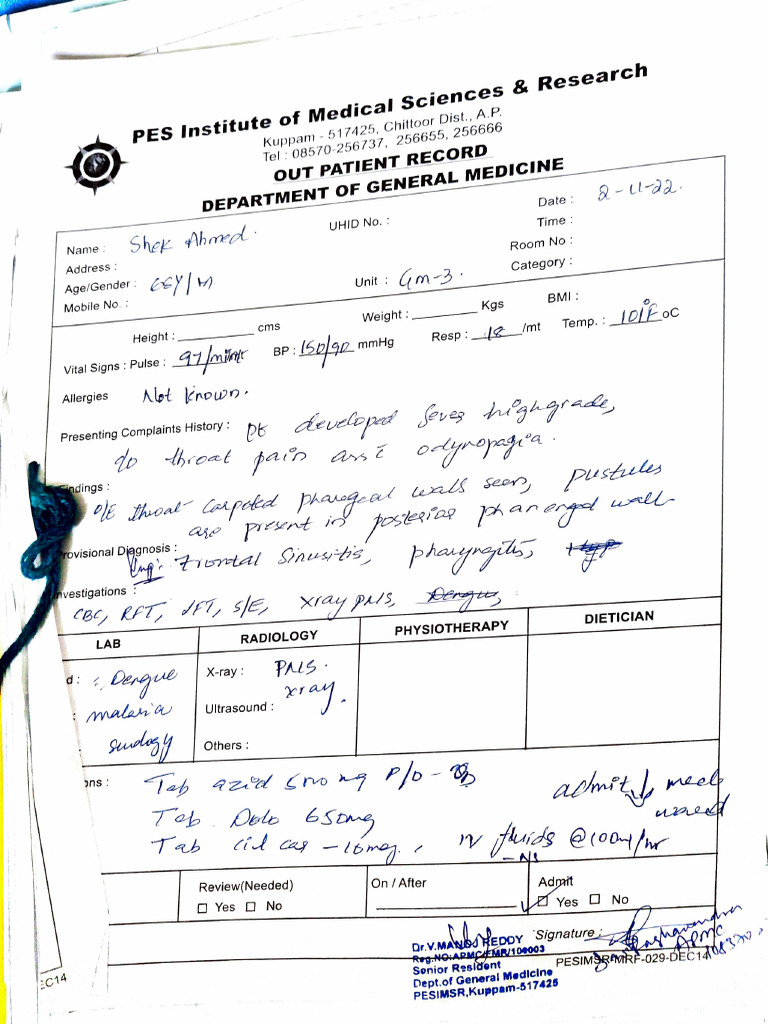 PES Institute of Medical Sciences & Research
Kuppam - 517425, Chittoor Dist., A.P.
Tel : 08570-256737, 256655, 256666
OUT PATIENT RECORD
DEPARTMENT OF GENERAL MEDICINE
Name : Shek Ahmed. UHID No. : Date : 2-11-22.
Address : Time :
Age/Gender : 65Y/M Unit : Gm-3. Room No :
Mobile No. : Category :
Height : cms Weight : Kgs BMI :
Vital Signs : Pulse : 97/mint BP : 150/90 mmHg Resp : 18 /mt Temp. : 101°F oC
Allergies Not known.
Presenting Complaints History : Pt developed fever highgrade,
c/o throat pain ass c odynopagia.
Findings : O/E throat - Carpeted pharegeal walls seen, pustules
are present in posterior pharengal wall
Provisional Diagnosis : Frontal Sinusitis, pharyngitis,
Investigations : CBC, RFT, LFT, S/E, xray PNS, Dengue,
LAB RADIOLOGY PHYSIOTHERAPY DIETICIAN
d : : Dengue X-ray : PNS.
xray.
: malaria Ultrasound :
: Others :
ons : Tab azid 500 mg P/O - admit medi
Tab. Dolo 650mg
Tab cal - 10meg. IV fluids @100ml/hr
- NS
Review(Needed) On / After Admit
Yes No Yes No
Signature :
Dr.V.MANOJ REDDY
Reg.NO:APMC/FMR/109003
Senior Resident
Dept.of General Medicine
PESIMSR,Kuppam-517425
Raghavendra
APMC
108320.
PESIMSR-MRF-029-DEC14
EC14